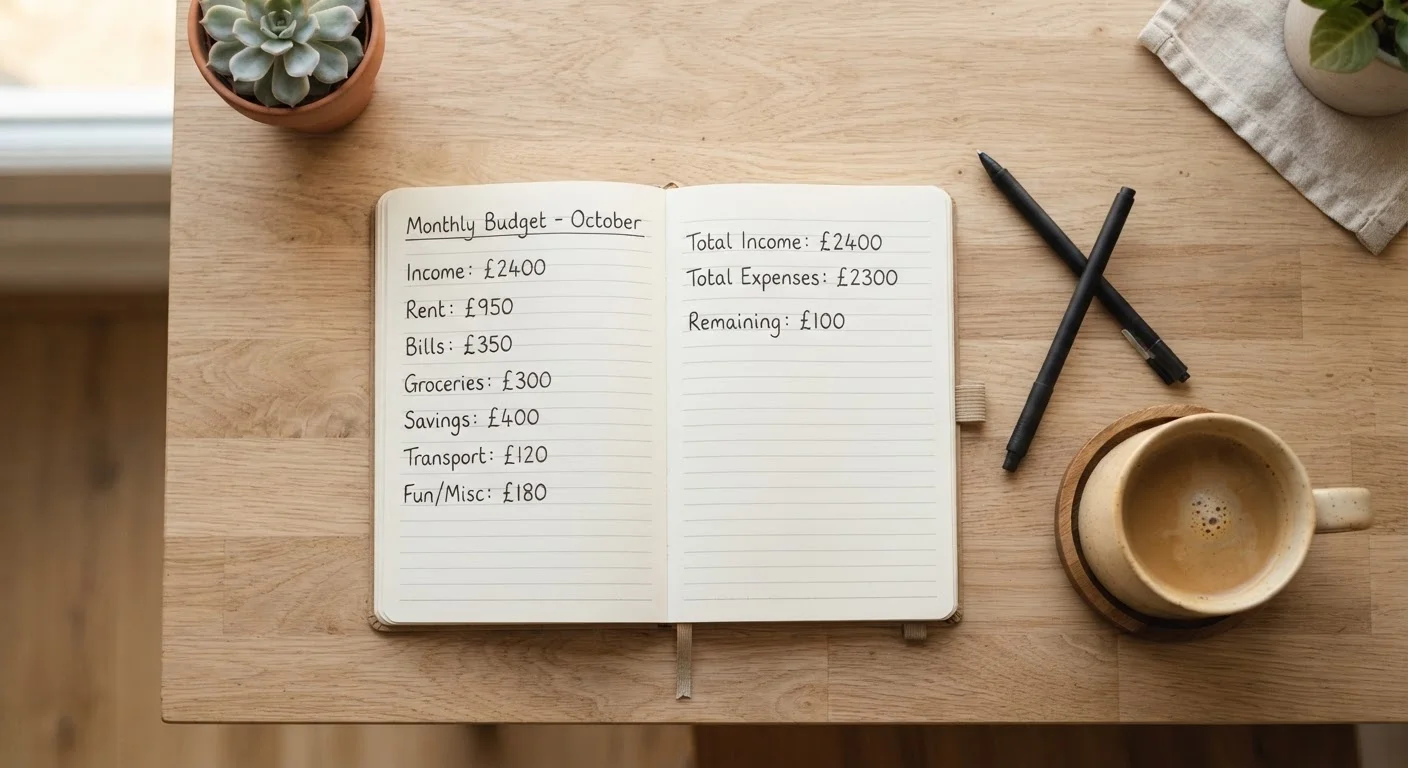 Monthly Budget - October
Income: £2400
Rent: £950
Bills: £350
Groceries: £300
Savings: £400
Transport: £120
Fun/Misc: £180
Total Income: £2400
Total Expenses: £2300
Remaining: £100